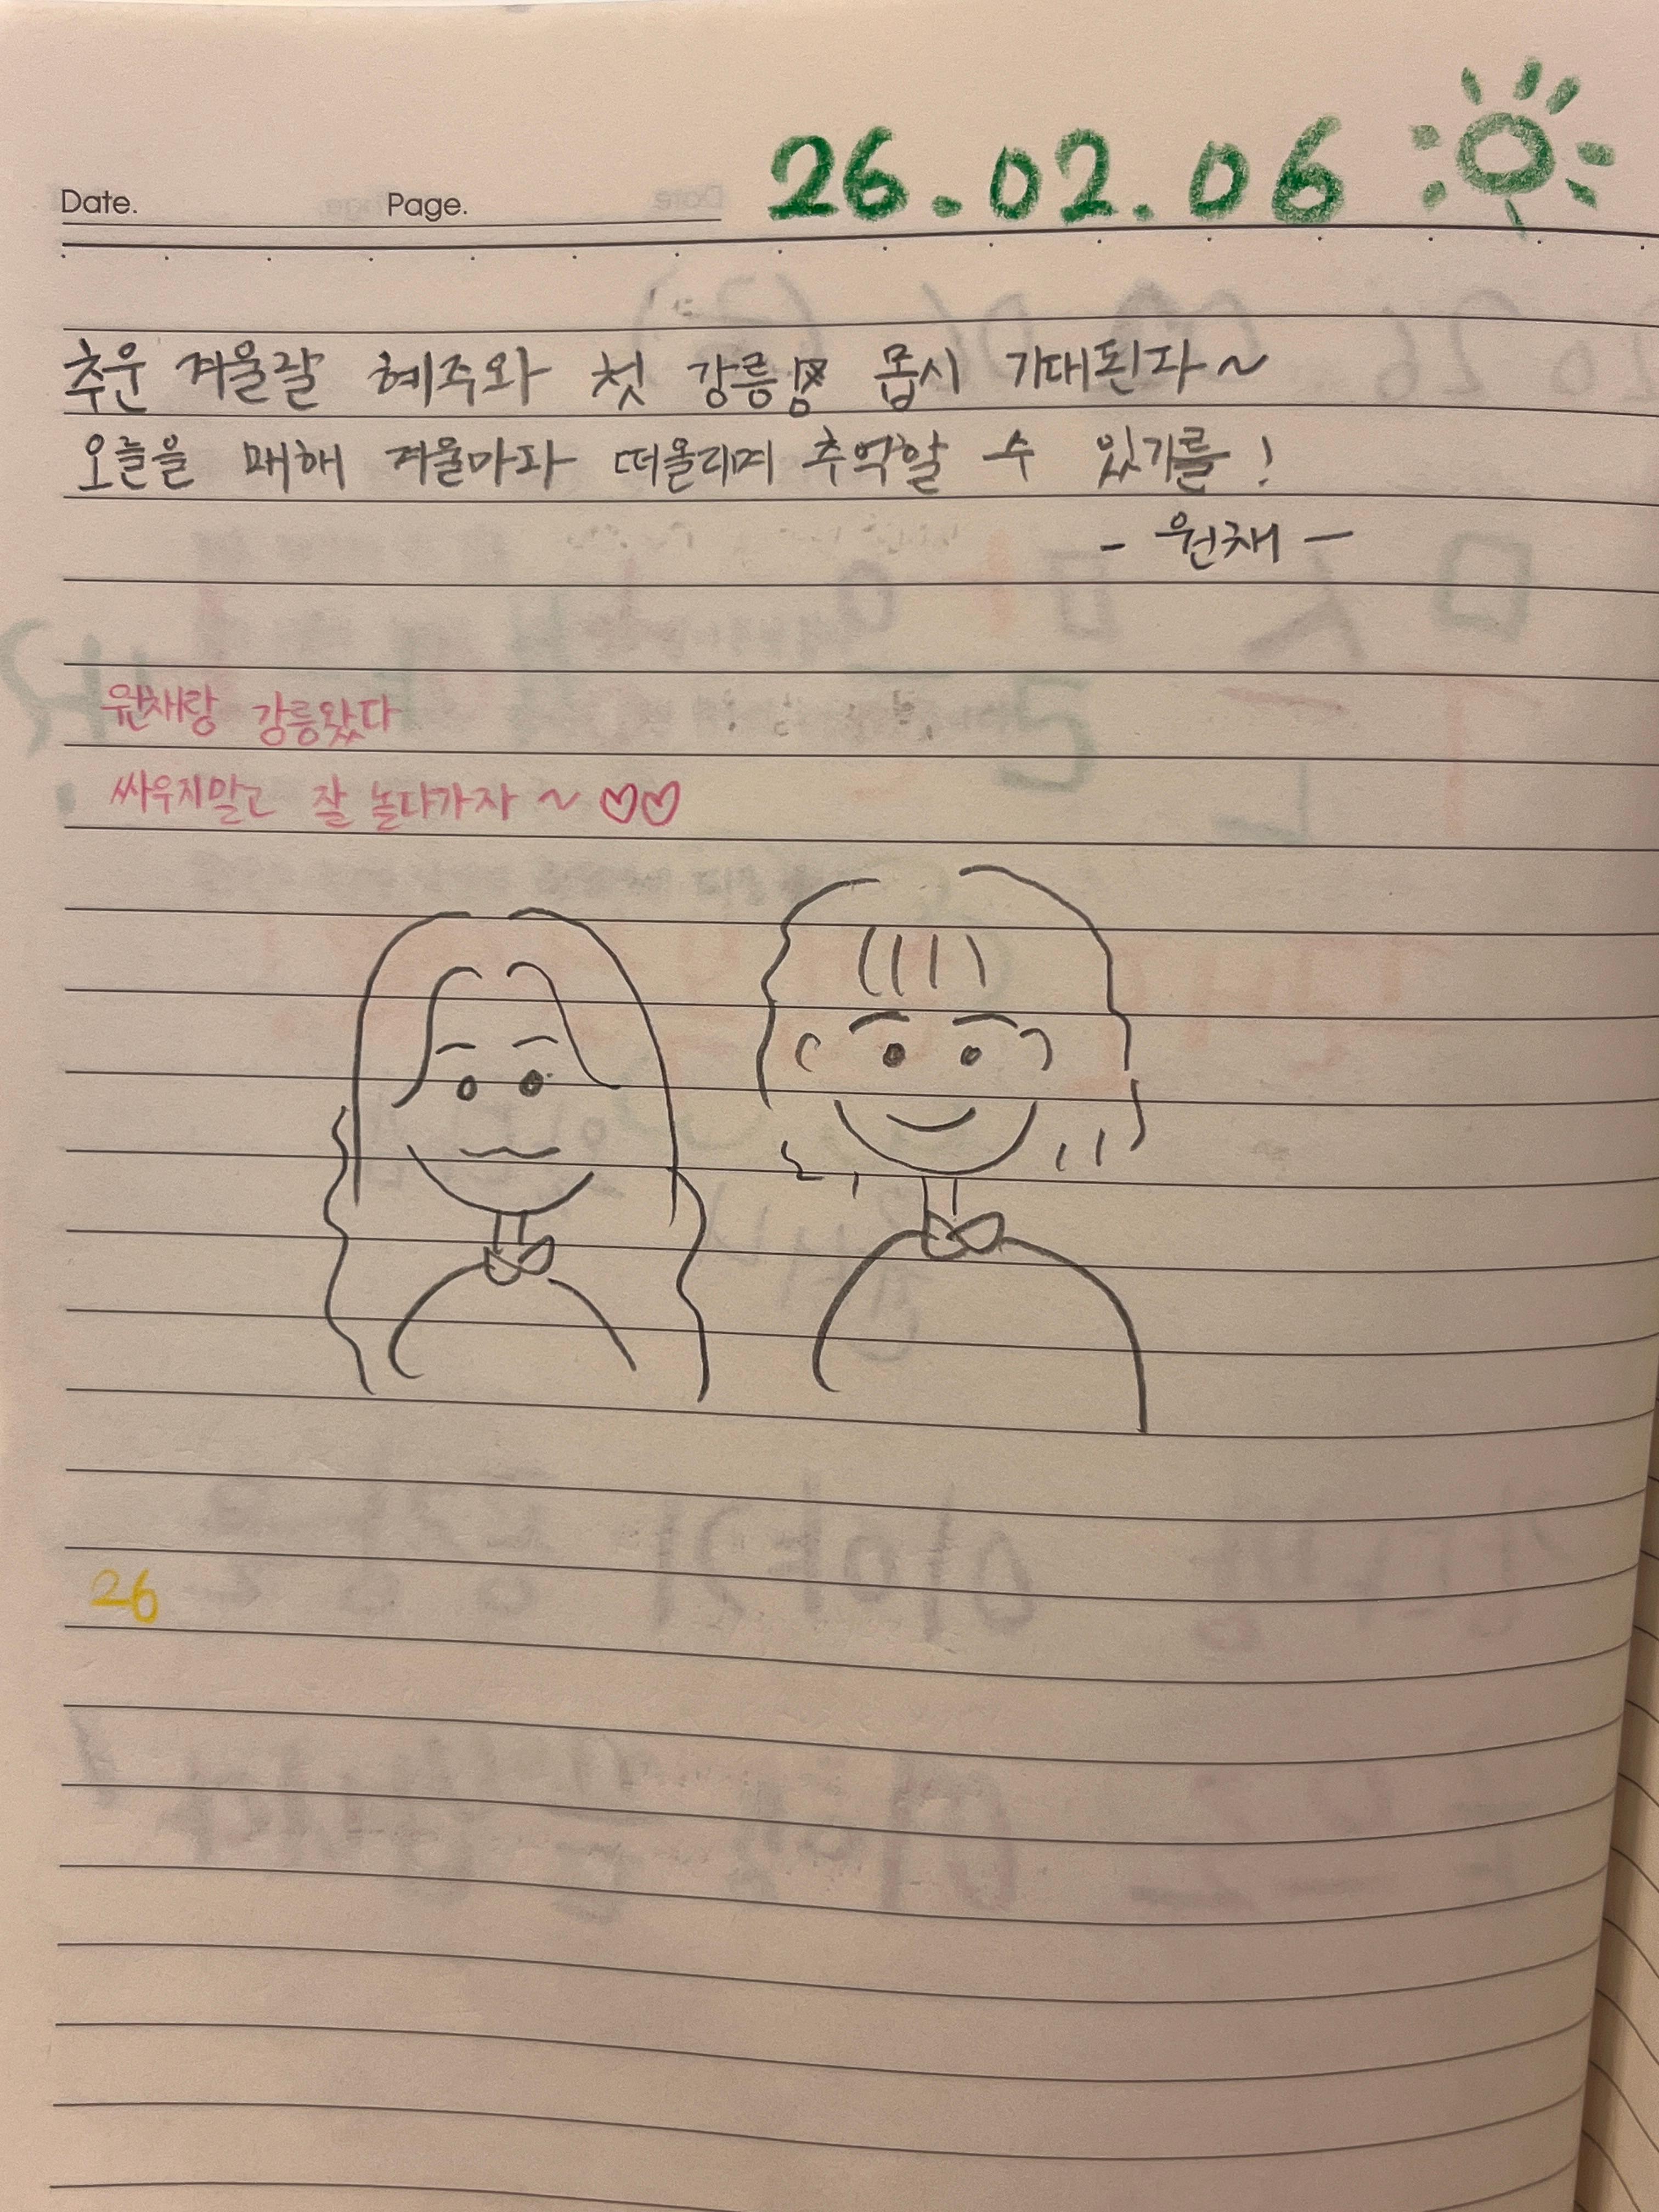 Date. Page. 26.02.06
추운 겨울날 혜주와 첫 강릉 몹시 기대된다~
오늘을 매해 겨울마다 떠올리며 추억할 수 있기를!
- 원채 -
원채랑 강릉왔다
싸우지말고 잘 놀다가자~♡♡
26